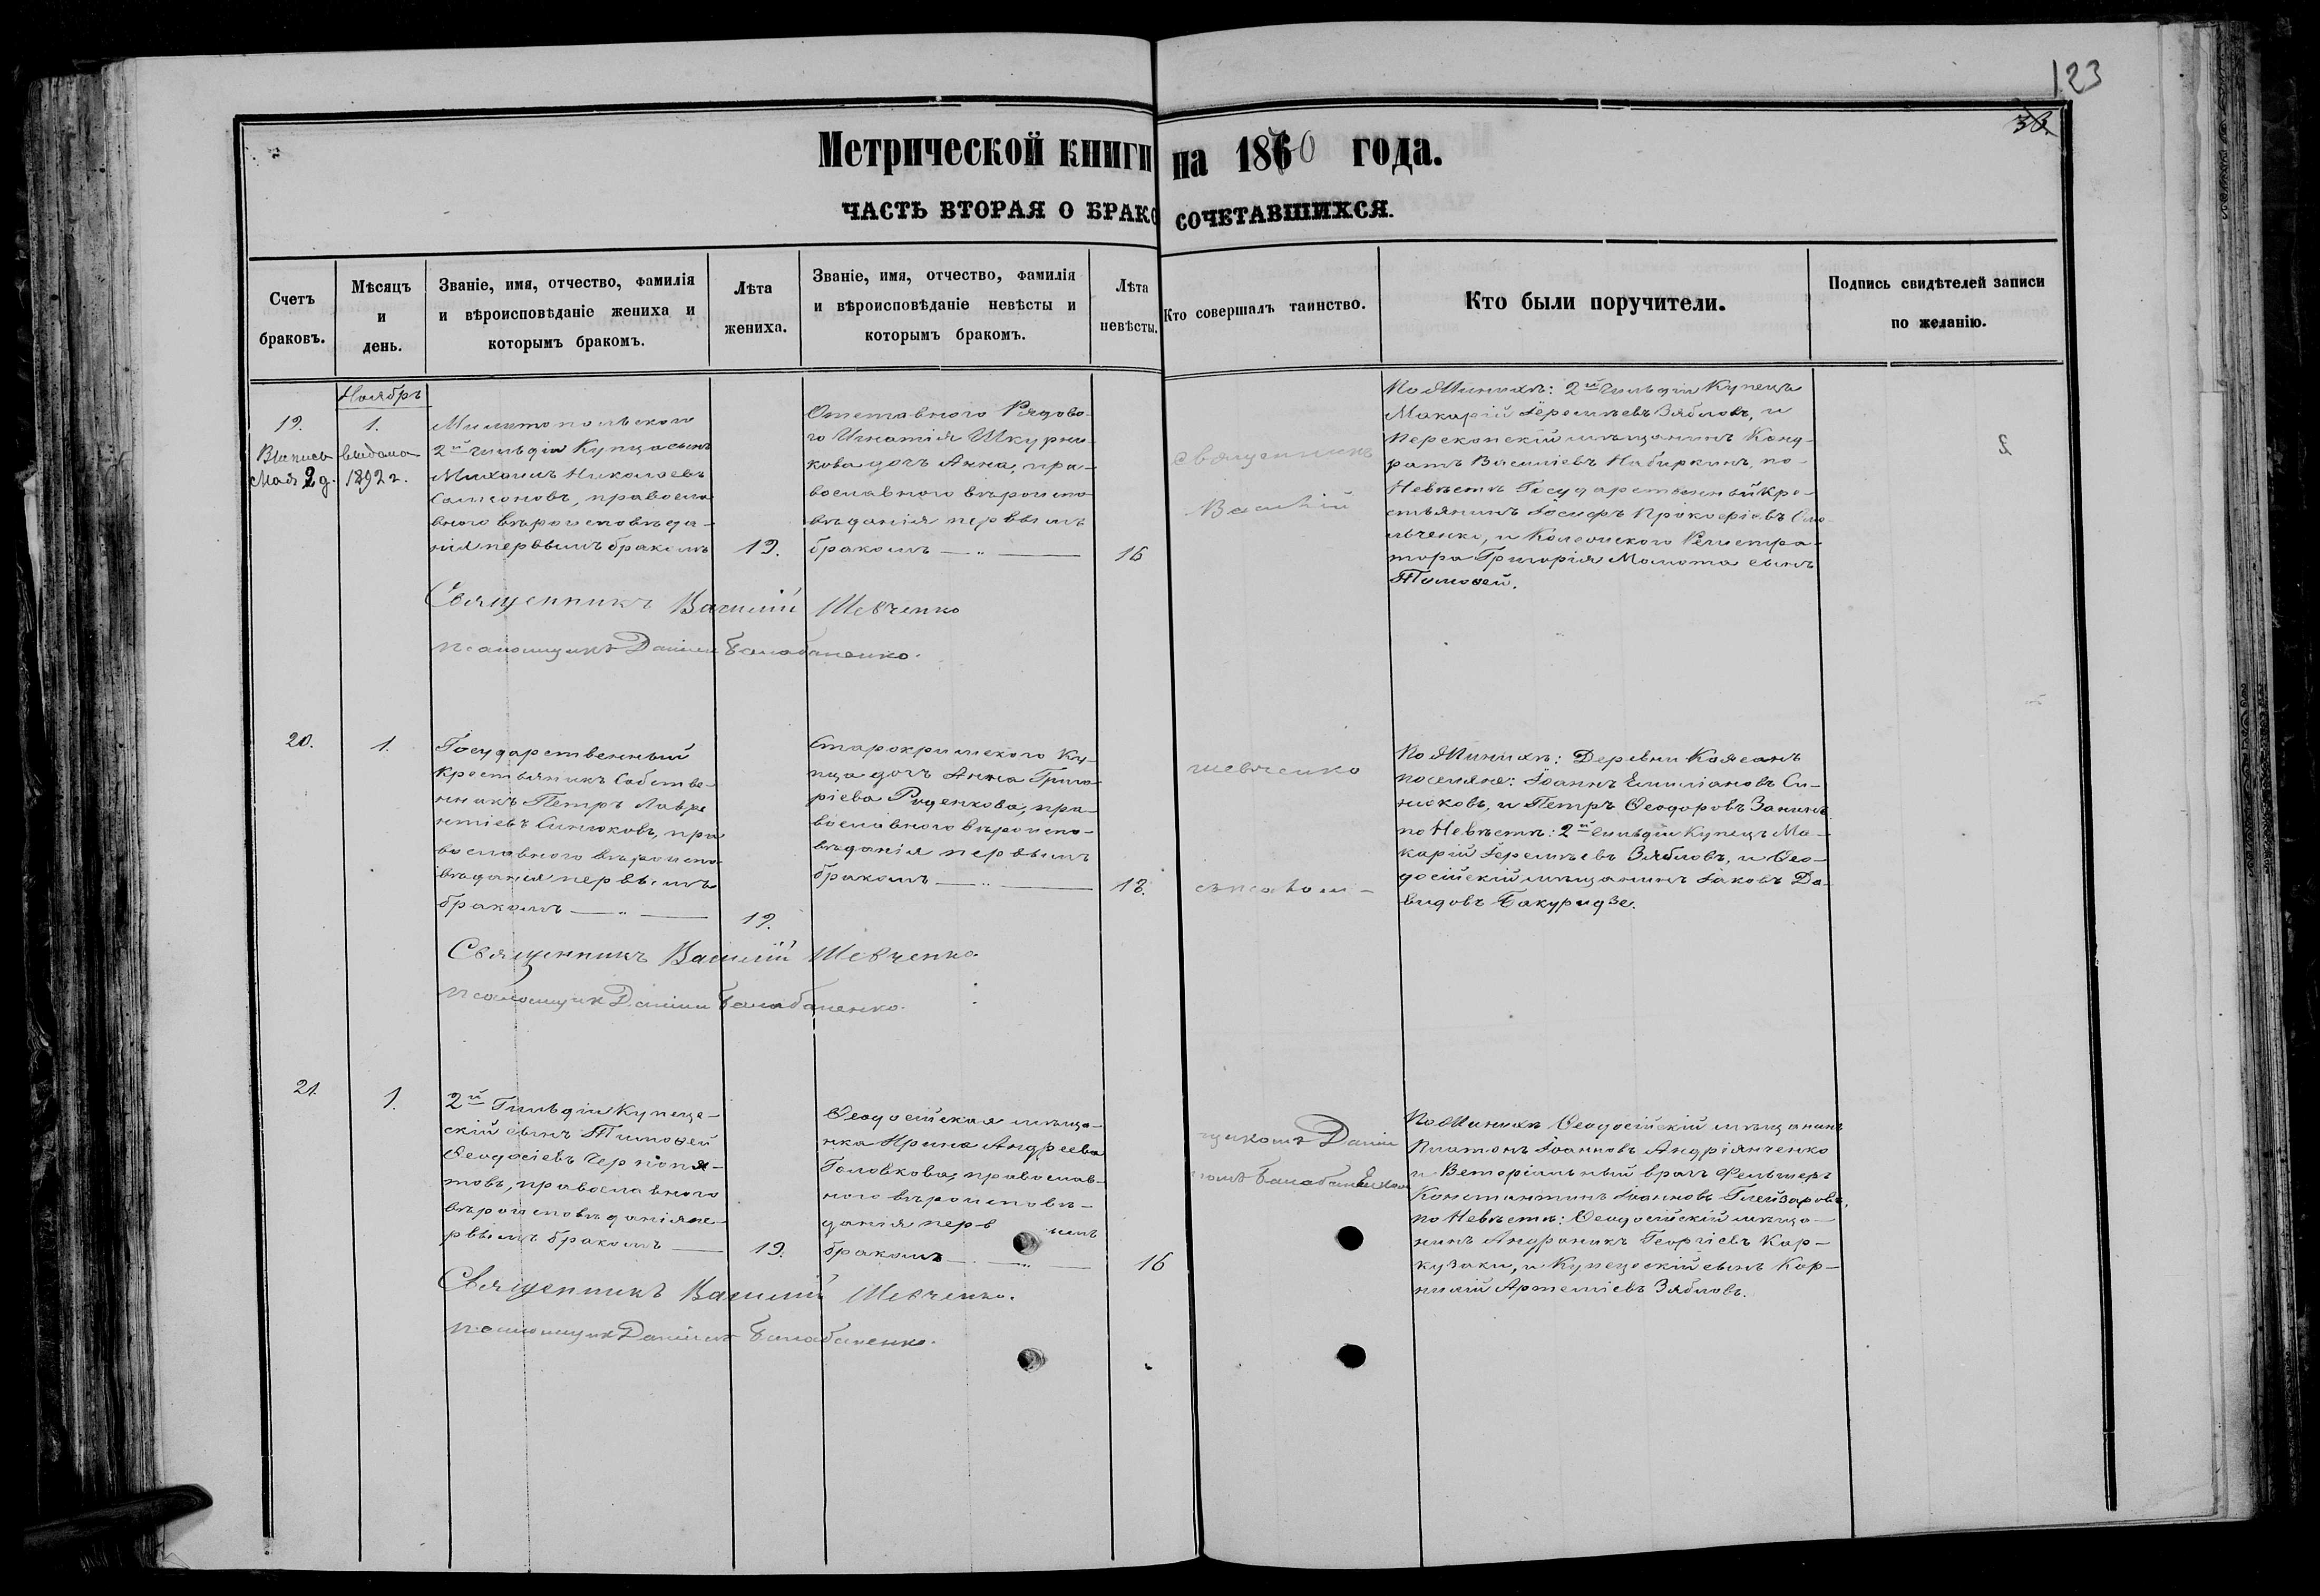 123
36.
Метрической книги на 1870 года.
ЧАСТЬ ВТОРАЯ О БРАКОСОЧЕТАВШИХСЯ.
Счетъ
браковъ.
Мѣсяцъ
и
день.
Званіе, имя, отчество, фамилія
и вѣроисповѣданіе жениха и
которымъ бракомъ.
Лѣта
жениха.
Званіе, имя, отчество, фамилія
и вѣроисповѣданіе невѣсты и
которымъ бракомъ.
Лѣта
невѣсты.
Кто совершалъ таинство.
Кто были поручители.
Подпись свидѣтелей записи
по желанію.
Ноябрь
19.
1.
Выпись выдана
Мая 2 д. 1892 г.
Мелитопольскаго
2й гильдіи Купца сынъ
Михаилъ Николаевъ
Самсоновъ, правосла
внаго вѣроисповѣда-
нія первымъ бракомъ
19.
Отставнаго Рядова-
го Игнатія Шкурни-
кова дочь Анна, пра-
вославнаго вѣроиспо-
вѣданія первымъ
бракомъ
16
Священникъ
Василій
По Женихѣ: 2й гильдіи Купецъ
Макарій Іереміевъ Зябловъ, и
Перекопскій мѣщанинъ Конд-
ратъ Василіевъ Набиркинъ, по
Невѣстѣ Государственный Кре-
стьянинъ Іосифъ Прокофіевъ Оме
льченко, и Коллежскаго Регистра-
тора Григорія Маломта сынъ
Тимоѳей.
Священникъ Василій Шевченко
псаломщикъ Даніилъ Балабаненко.
20.
1.
Государственный
Крестьянинъ Собстве-
нникъ Петръ Лавре
нтіевъ Синюковъ, пра
вославнаго вѣроиспо-
вѣданія первымъ
бракомъ
19.
Старокрымскаго Ку-
пца дочь Анна Григо-
ріева Руденкова, пра-
вославнаго вѣроиспо-
вѣданія первымъ
бракомъ
18.
Шевченко
съ псалом-
По Женихѣ: Деревни Коясанъ
поселяне: Іоаннъ Емиліановъ Си-
нюковъ, и Петръ Ѳеодоровъ Занинъ
по Невѣстѣ: 2й гильдіи Купецъ Ма-
карій Іереміевъ Зябловъ, и Ѳео-
досійскій мѣщанинъ Іаковъ Да-
видовъ Бакуридзе.
Священникъ Василій Шевченко
псаломщик Даніилъ Балабаненко.
21.
1.
2й Гильдіи Купече-
скій сынъ Тимоѳей
Ѳеодосіевъ Чернопя-
товъ, православнаго
вѣроисповѣданія пе-
рвымъ бракомъ
19.
Ѳеодосійская мѣща-
нка Ирина Андреева
Головкова, православ-
наго вѣроисповѣ-
данія первымъ
бракомъ
16
щикомъ Даніи
ломъ Балабаненкомъ
По Женихѣ Ѳеодосійскій мѣщанинъ
Платонъ Іоанновъ Андріянченко
и Ветеріальный врачъ Фельшеръ
Константинъ Іоанновъ Глейзаровъ,
по Невѣстѣ: Ѳеодосійскій мѣща-
нинъ Андроникъ Георгіевъ Кар-
кузаки, и Купеческій сынъ Кор-
нилій Артеміевъ Зябловъ.
Священникъ Василій Шевченко.
псаломщик Даніилъ Балабаненко.